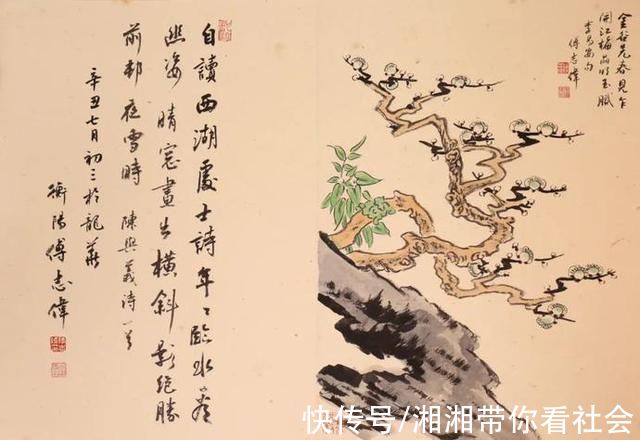 金谷先春見乍
開江梅晶明玉膩
李易安句
傅志偉
自讀西湖處士詩年〻臨水看
幽姿晴窓畫出橫斜影絕勝
前邨夜雪時 陳與義詩一首
辛丑七月初三於龍
衡陽傅志偉
快传号/湘湘带你看社会